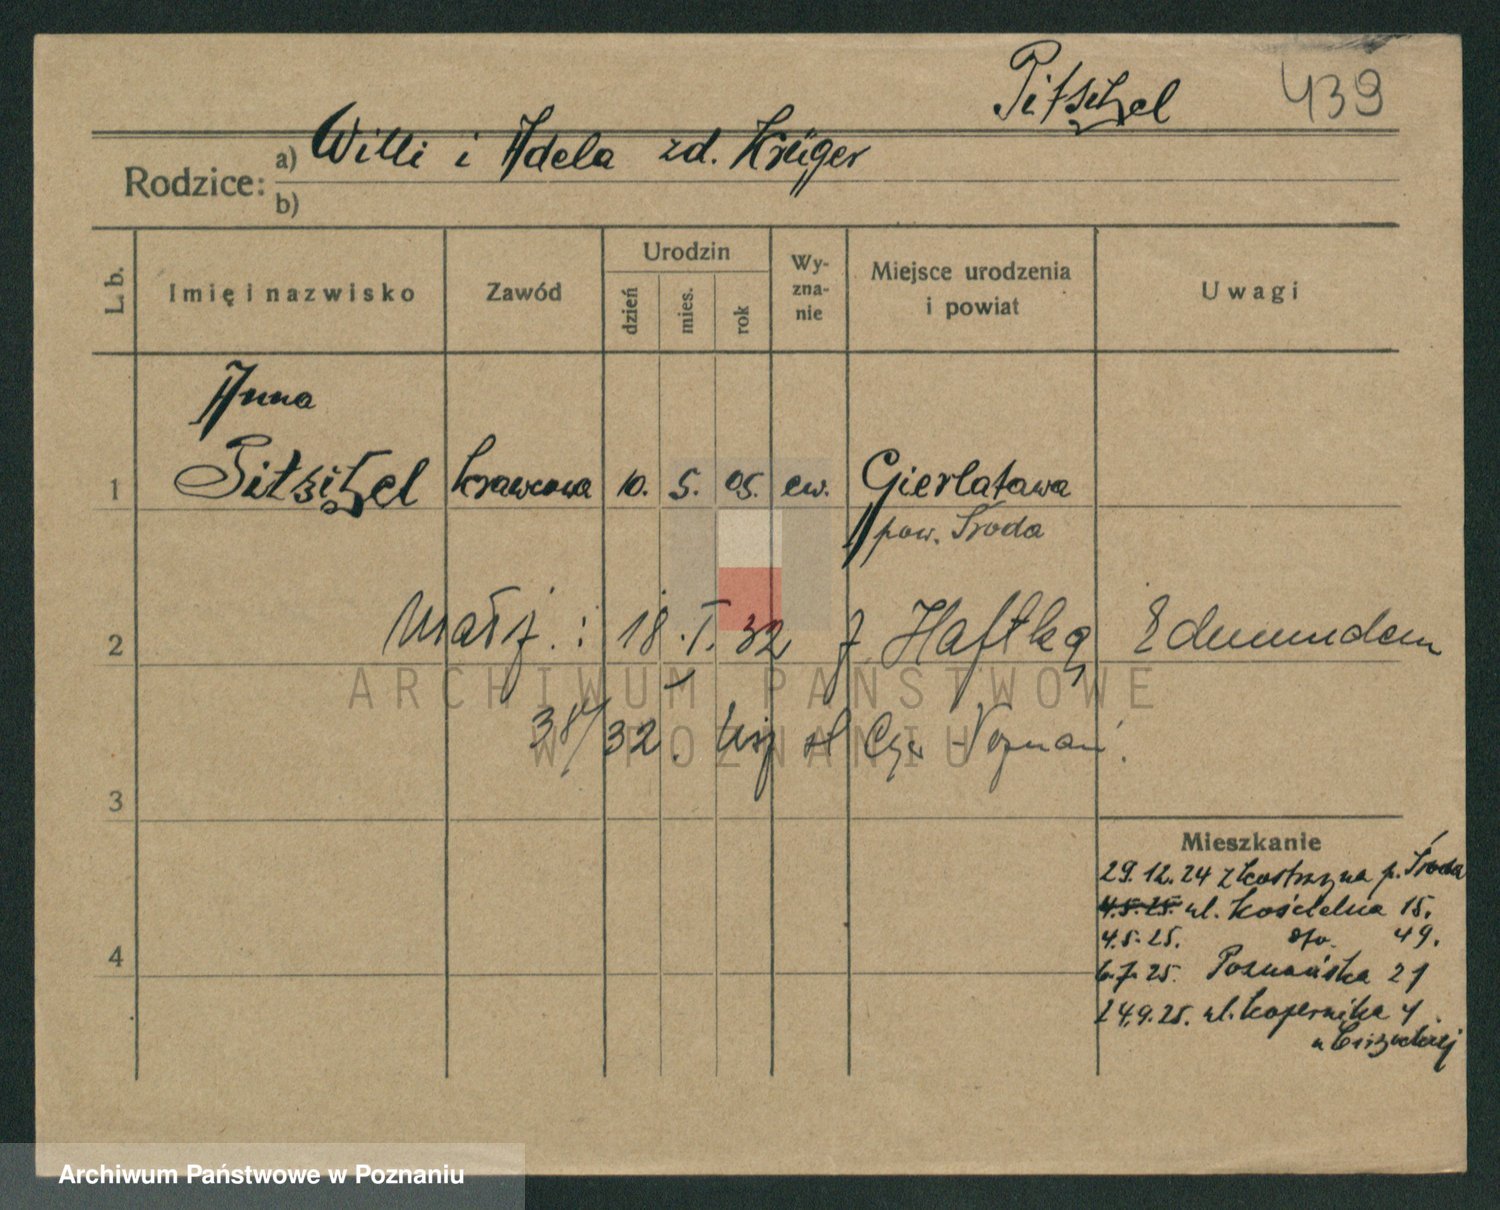 Pitschel 439
Rodzice: a) Willi i Adela zd. Krüger
b)
L. b.
Imię i nazwisko
Zawód
Urodzin
dzień
mies.
rok
Wy-
zna-
nie
Miejsce urodzenia
i powiat
Uwagi
Anna
1 krawcowa 10. 5. 05. ew. Gierłatowa
pow. Środa
2 małż.: 18.I.32 z Haftką Edmundem
38/32. Poznań.
3
Mieszkanie
29.12.24 z Kostrzyna p. Środa
4.5.25. ul. Kościelna 15.
4.5.25. dto. 49.
6.7.25. Poznańska 21
24.9.25. ul. Kopernika 4
4
ARCHIWUM PAŃSTWOWE
W POZNANIU
Archiwum Państwowe w Poznaniu